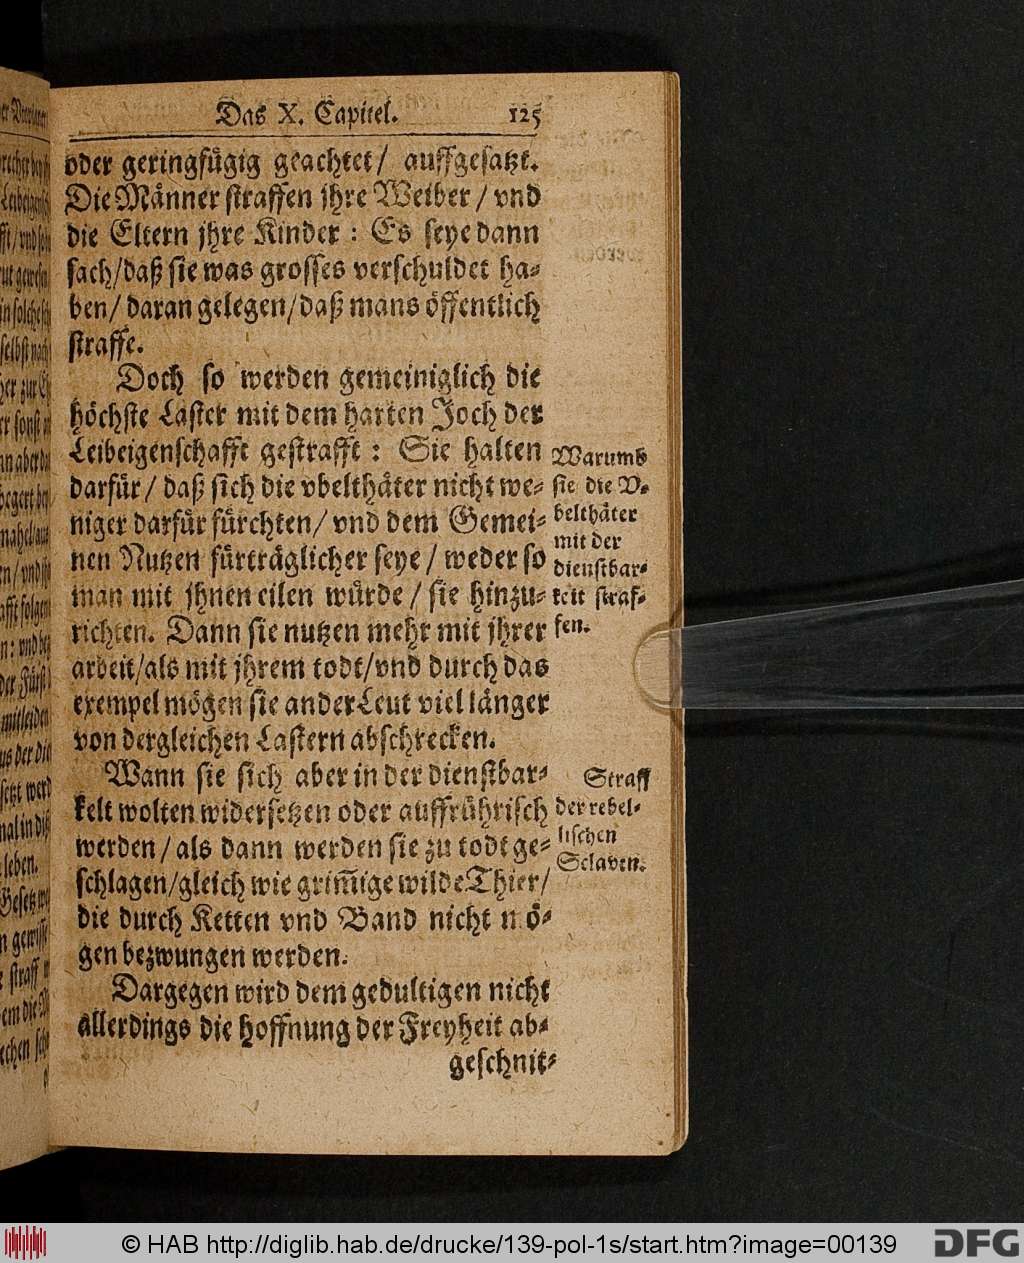 Das X. Capitel. 125
oder geringfügig geachtet/ auffgesatzt.
Die Männer straffen jhre Weiber / vnd
die Eltern jhre Kinder : Es seye dann
sach/daß sie was grosses verschuldet ha-
ben/ daran gelegen/daß mans öffentlich
straffe.
Doch so werden gemeiniglich die
höchste Laster mit dem harten Joch der
Leibeigenschafft gestrafft : Sie halten
darfür / daß sich die vbelthäter nicht we-
niger darfür fürchten/ vnd dem Gemei-
nen Nutzen fürträglicher seye / weder so
man mit jhnen eilen würde / sie hinzu-
richten. Dann sie nutzen mehr mit jhrer
arbeit/als mit jhrem todt/vnd durch das
exempel mögen sie ander Leut viel länger
von dergleichen Lastern abschrecken.
Warumb
sie die V-
belthäter
mit der
dienstbar-
keit straf-
fen.
Wann sie sich aber in der dienstbar-
keit wolten widersetzen oder auffrührisch
werden / als dann werden sie zu todt ge-
schlagen/gleich wie grim̄ige wilde Thier/
die durch Ketten vnd Band nicht mö-
gen bezwungen werden.
Straff
der rebel-
lischen
Sclaven.
Dargegen wird dem gedultigen nicht
allerdings die hoffnung der Freyheit ab-
geschnit-
© HAB http://diglib.hab.de/drucke/139-pol-1s/start.htm?image=00139
DFG